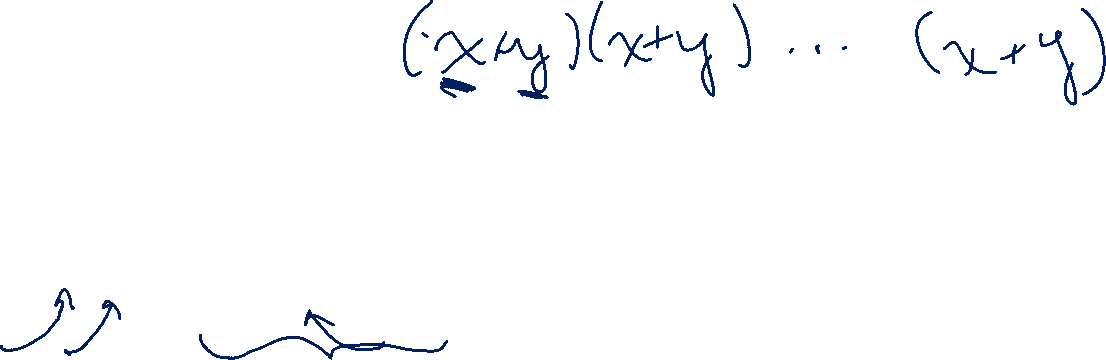 (x+y)(x+y) ... (x+y)